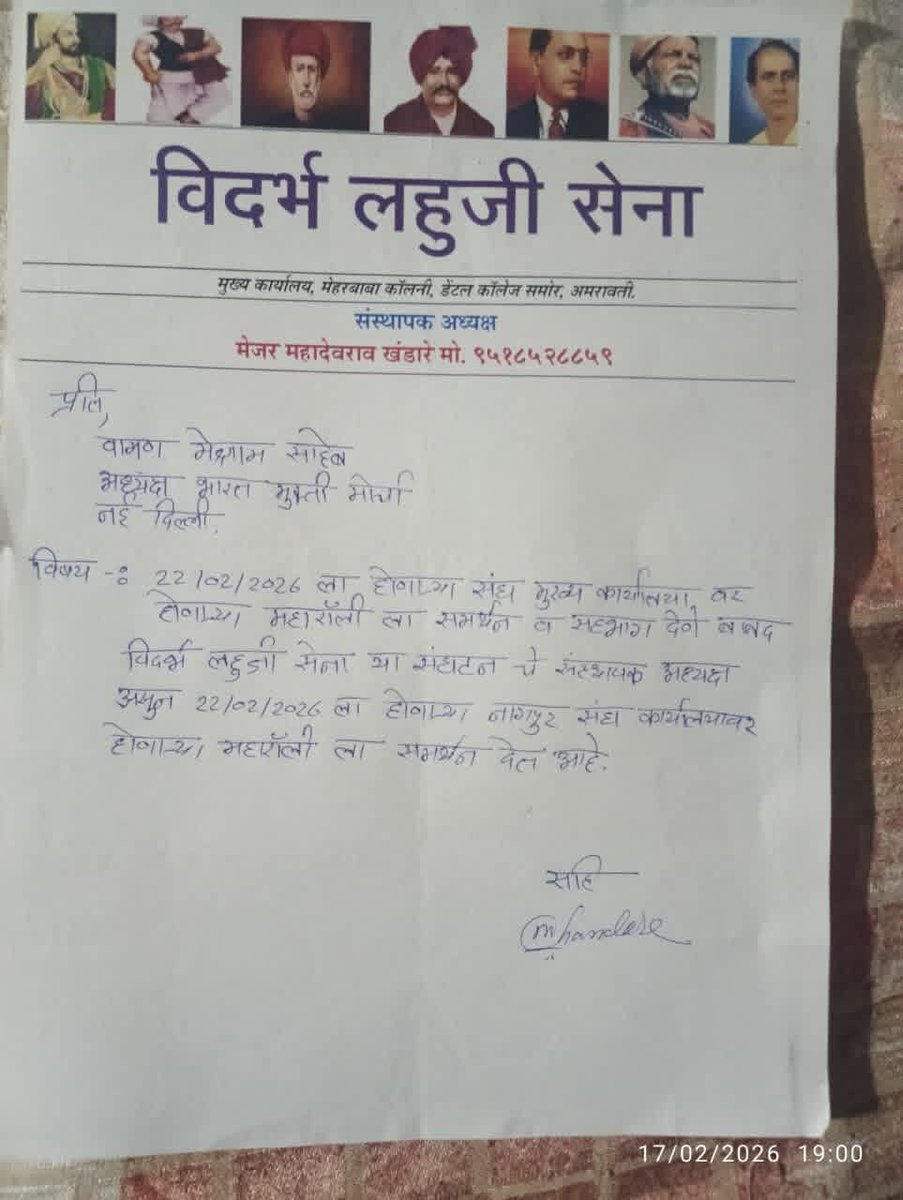 विदर्भ लहुजी सेना
मुख्य कार्यालय, मेहरबाबा कॉलनी, डेंटल कॉलेज समोर, अमरावती.
संस्थापक अध्यक्ष
मेजर महादेवराव खंडारे मो. ९५१८५२८८५९
प्रति,
वामण मेश्राम साहेब
अध्यक्ष भारत मुक्ती मोर्चा
नई दिल्ली.
विषय -: 22/02/2026 ला होणाऱ्या संघ मुख्य कार्यालया वर
होणाऱ्या महारॉली ला समर्थन व सहभाग देणे बाबद
विदर्भ लहुजी सेना या संघटन चे संस्थापक अध्यक्ष
असुन 22/02/2026 ला होणाऱ्या नागपुर संघ कार्यालयावर
होणाऱ्या महारॉली ला समर्थन देत आहे.
सहि
Mkhandare
17/02/2026 19:00